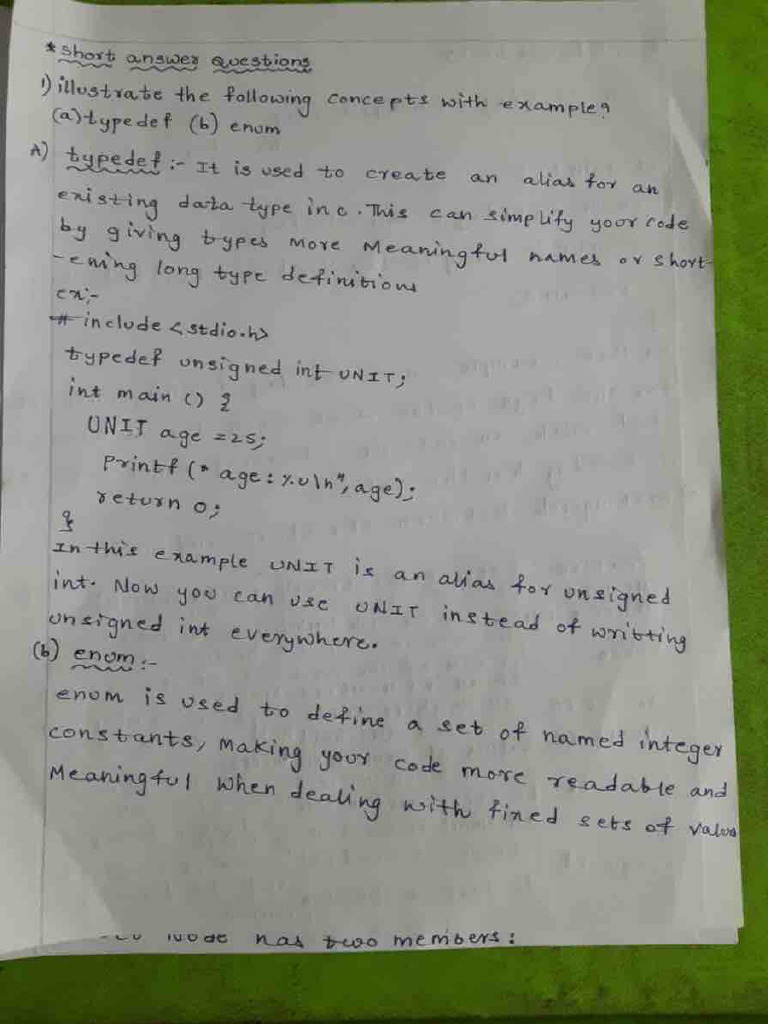 * Short answer questions
1) illustrate the following concepts with example?
(a) typedef (b) enum
A) typedef :- It is used to create an alias for an
existing data type in c. This can simplify your code
by giving types More Meaningful names or short-
-ening long type definitions
ex:-
# include <stdio.h>
typedef unsigned int UNIT;
int main () {
UNIT age =25;
Printf (" age : %u\n", age);
return 0;
}
In this example UNIT is an alias for unsigned
int. Now you can use UNIT instead of writting
unsigned int everywhere.
(b) enum :-
enum is used to define a set of named integer
constants, Making your code more readable and
Meaningful when dealing with fixed sets of values
Node has two members :